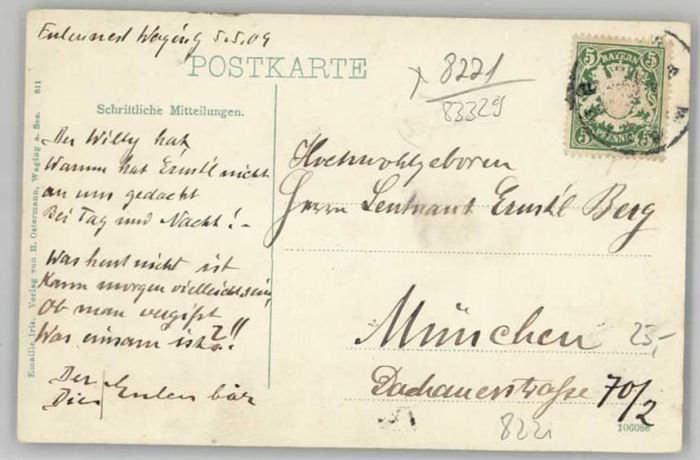 Eulennest Waging 5.5.09
POSTKARTE
Schriftliche Mitteilungen.
Der Willy hat
Warum hat Ernstl nicht
an uns gedacht
Bei Tag und Nacht! -
Was heut nicht ist
Kann morgen vielleicht sein
Ob man vergißt
Was einsam ist?!!
Der
Die Eulen bär
Emaille Iris. Verlag von H. Ostermann, Waging a. See. 611
8221
83329
5 BAYERN 5
5 PFENNIG 5
Hochwohlgeboren
Herrn Leutnant Ernstl Berg
München
25,-
Dachauerstraße 70/2
8221
106086